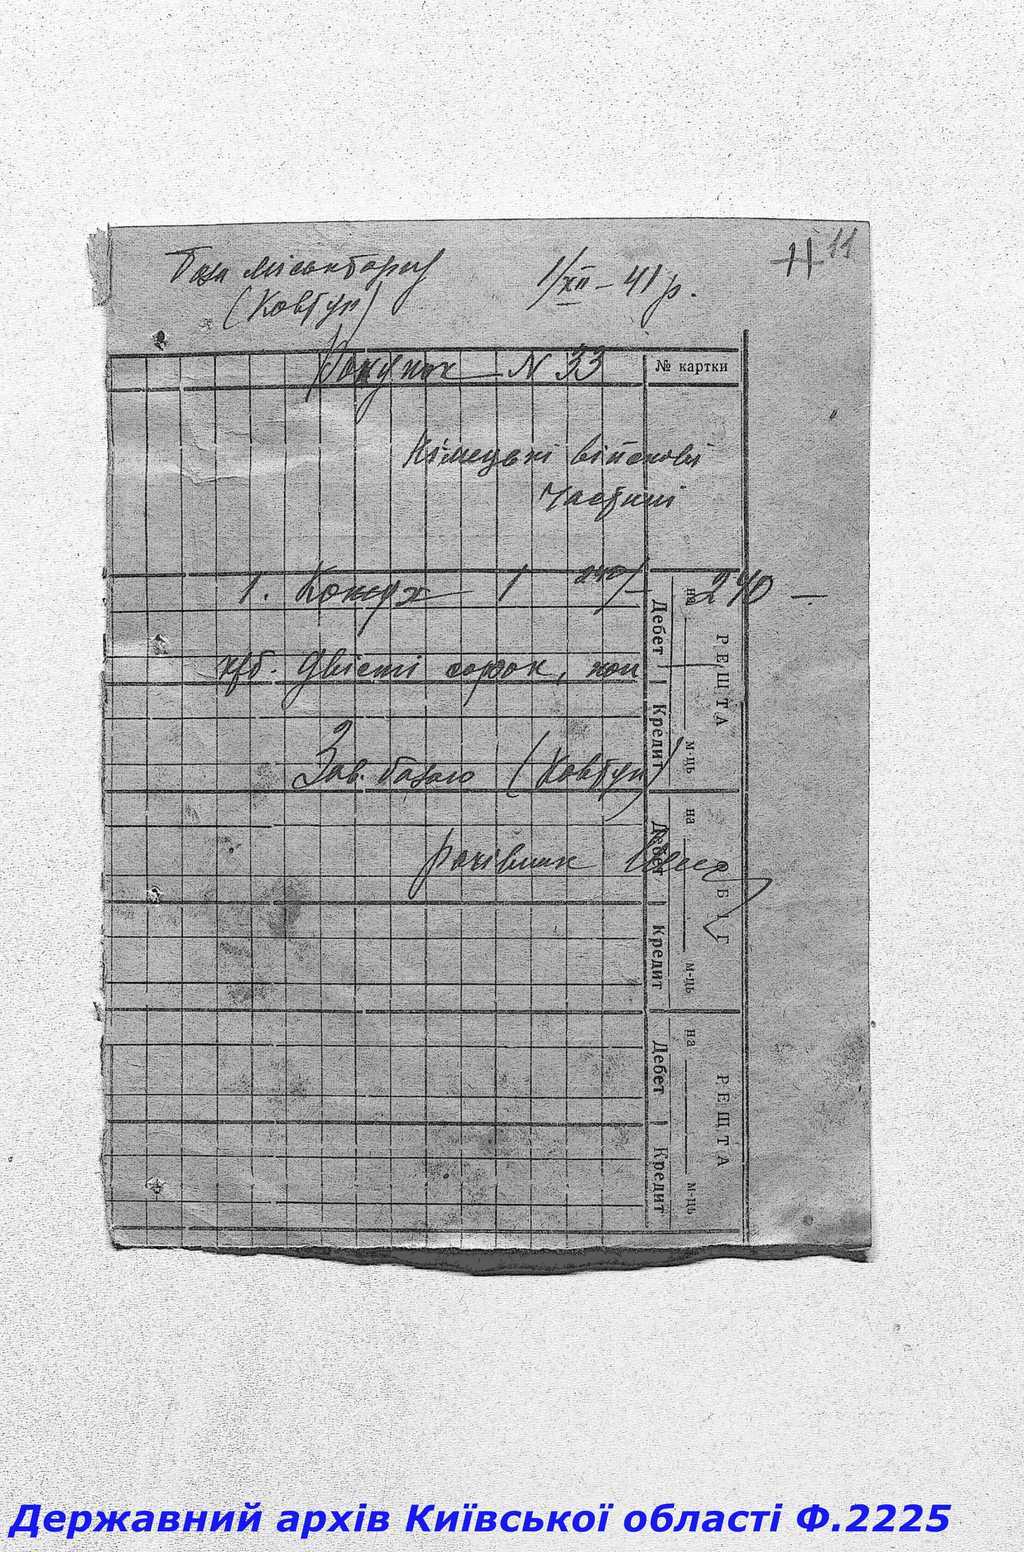 База міськторгу 1/XII – 41 р. 11 11
(Ковтун)
Рахунок N 33
№ картки
Німецькі військові
частині
1. Кожух 1 240/– 240 –
крб. Двісті сорок, коп
Зав. базою (Ковтун)
рахівник
на м-ць РЕШТА
Дебет Кредит
на м-ць ОБІГ
Дебет Кредит
на м-ць РЕШТА
Дебет Кредит
Державний архів Київської області Ф.2225